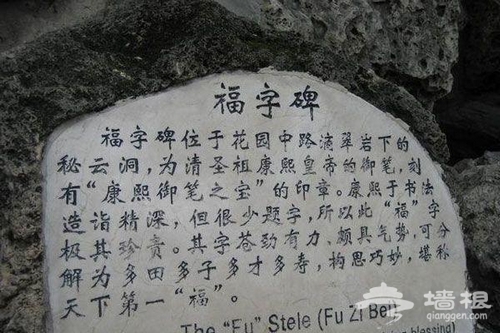 福字碑
福字碑位于花园中路滴翠岩下的
秘云洞，为清圣祖康熙皇帝的御笔，刻
有“康熙御笔之宝”的印章。康熙于书法
造诣精深，但很少题字，所以此“福”字
极其珍贵。其字苍劲有力、颇具气势，可分
解为多田多子多才多寿，构思巧妙，堪称
天下第一“福”。
The "Fu" Stele (Fu Zi Bei)
blessing)
墙根
qianggen.com